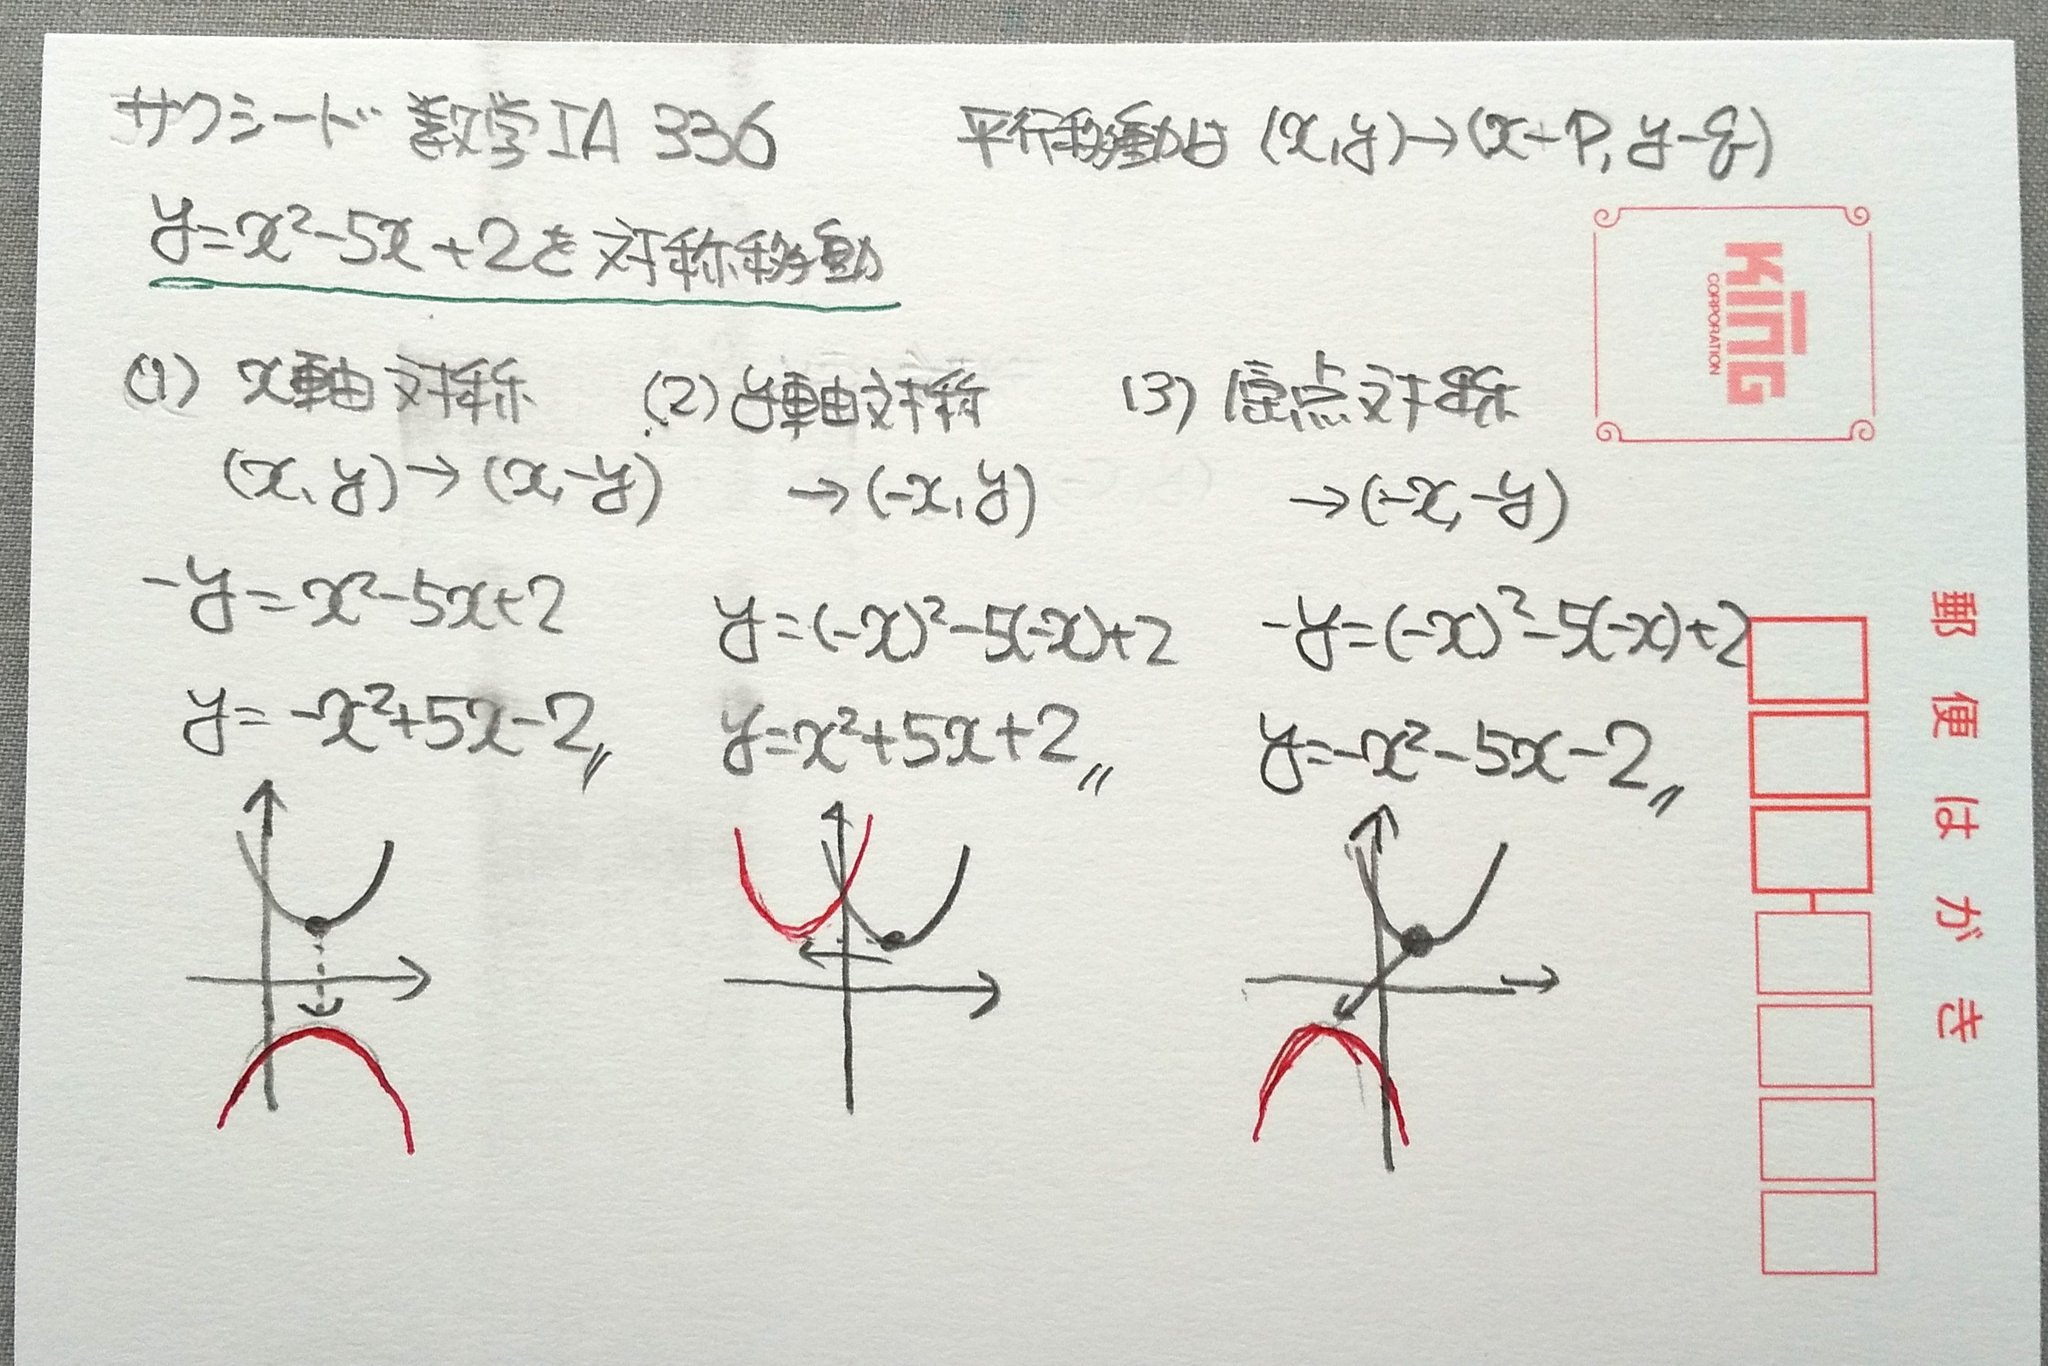 サクシード 数学IA 336
平行移動は (x,y)→(x-p, y-q)
y=x²-5x+2を対称移動
(1) x軸対称
(x,y)→(x,-y)
-y=x²-5x+2
y=-x²+5x-2〃
(2) y軸対称
→(-x,y)
y=(-x)²-5(-x)+2
y=x²+5x+2〃
(3) 原点対称
→(-x,-y)
-y=(-x)²-5(-x)+2
y=-x²-5x-2〃
KING
CORPORATION
郵便はがき